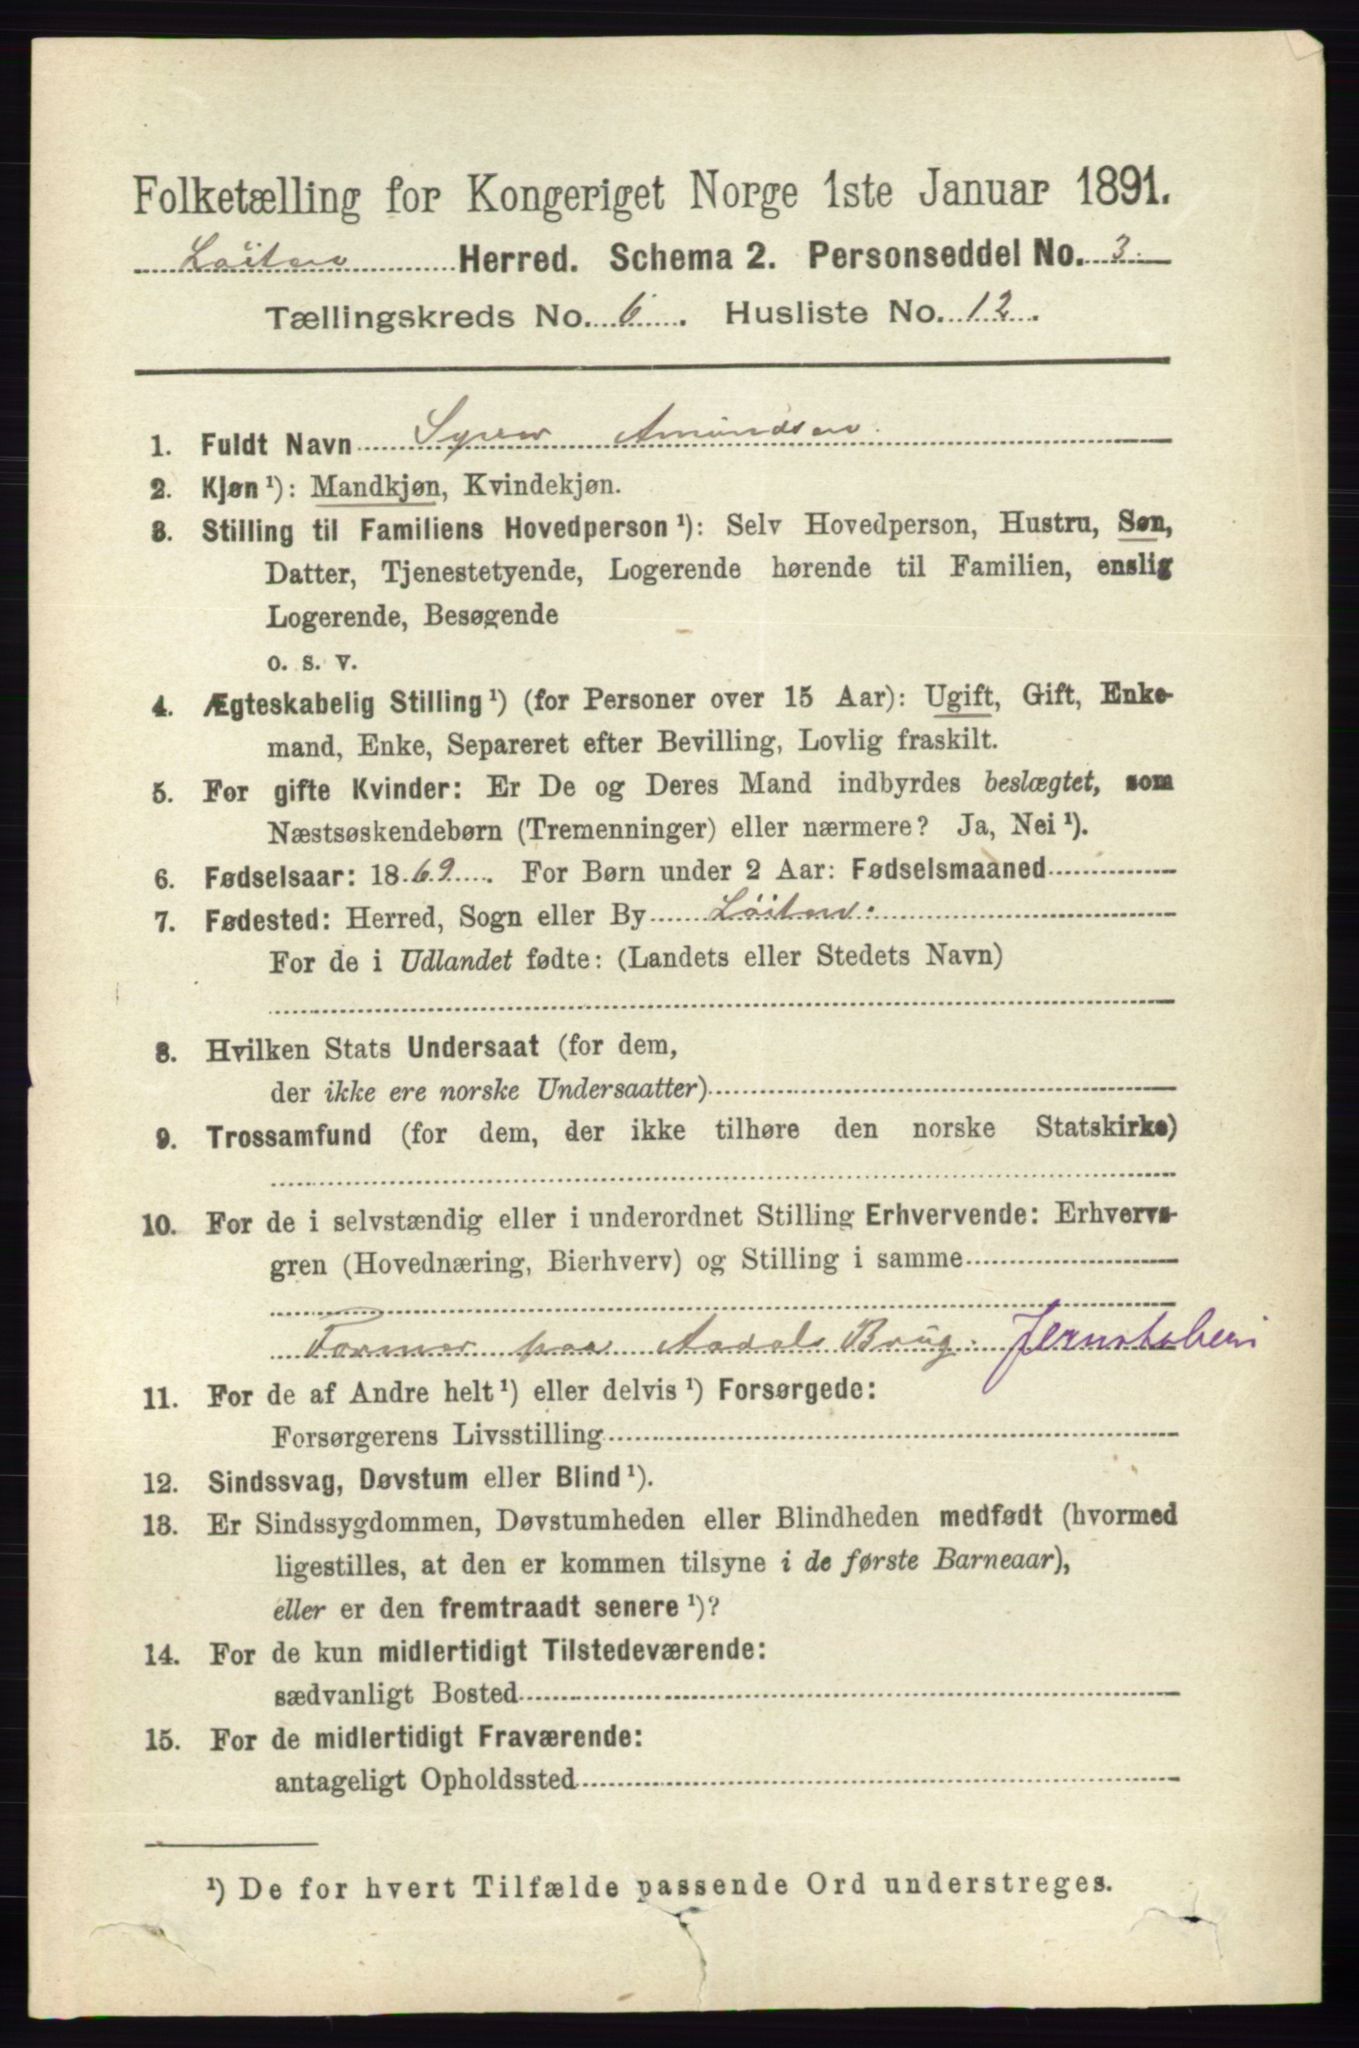 Folketælling for Kongeriget Norge 1ste Januar 1891.
Löiten Herred. Schema 2. Personseddel No. 3
Tællingskreds No. 6. Husliste No. 12.
1. Fuldt Navn Syver Amundsen.
2. Kjøn ¹): Mandkjøn, Kvindekjøn.
3. Stilling til Familiens Hovedperson ¹): Selv Hovedperson, Hustru, Søn,
Datter, Tjenestetyende, Logerende hørende til Familien, enslig
Logerende, Besøgende
o. s. v.
4. Ægteskabelig Stilling ¹) (for Personer over 15 Aar): Ugift, Gift, Enke-
mand, Enke, Separeret efter Bevilling, Lovlig fraskilt.
5. For gifte Kvinder: Er De og Deres Mand indbyrdes beslægtet, som
Næstsøskendebørn (Tremenninger) eller nærmere? Ja, Nei ¹).
6. Fødselsaar: 1869. For Børn under 2 Aar: Fødselsmaaned
7. Fødested: Herred, Sogn eller By Löiten.
For de i Udlandet fødte: (Landets eller Stedets Navn)
8. Hvilken Stats Undersaat (for dem,
der ikke ere norske Undersaatter)
9. Trossamfund (for dem, der ikke tilhøre den norske Statskirke)
10. For de i selvstændig eller i underordnet Stilling Erhvervende: Erhvervs-
gren (Hovednæring, Bierhverv) og Stilling i samme
Former paa Aadals Brug. Jernstøberi
11. For de af Andre helt ¹) eller delvis ¹) Forsørgede:
Forsørgerens Livsstilling
12. Sindssvag, Døvstum eller Blind ¹).
13. Er Sindssygdommen, Døvstumheden eller Blindheden medfødt (hvormed
ligestilles, at den er kommen tilsyne i de første Barneaar),
eller er den fremtraadt senere ¹)?
14. For de kun midlertidigt Tilstedeværende:
sædvanligt Bosted
15. For de midlertidigt Fraværende:
antageligt Opholdssted
¹) De for hvert Tilfælde passende Ord understreges.